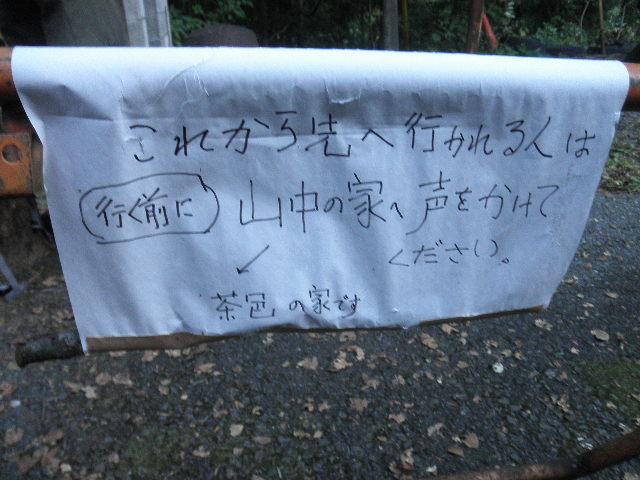 これから先へ行かれる人は
行く前に 山中の家へ声をかけて
ください。
↙
茶色の家です